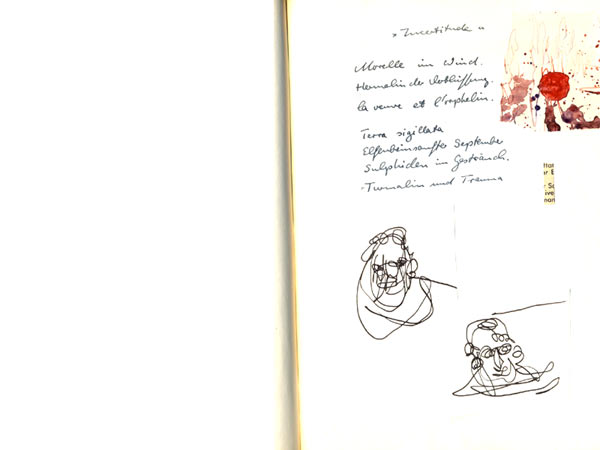 »Incertitude«
Morelle im Wind.
Hermelin der
la veuve et l'orphelin.
Terra sigillata
Elfenbeinsanfter September
Sylphiden im Gesträuch.
Turmalin und Trauma